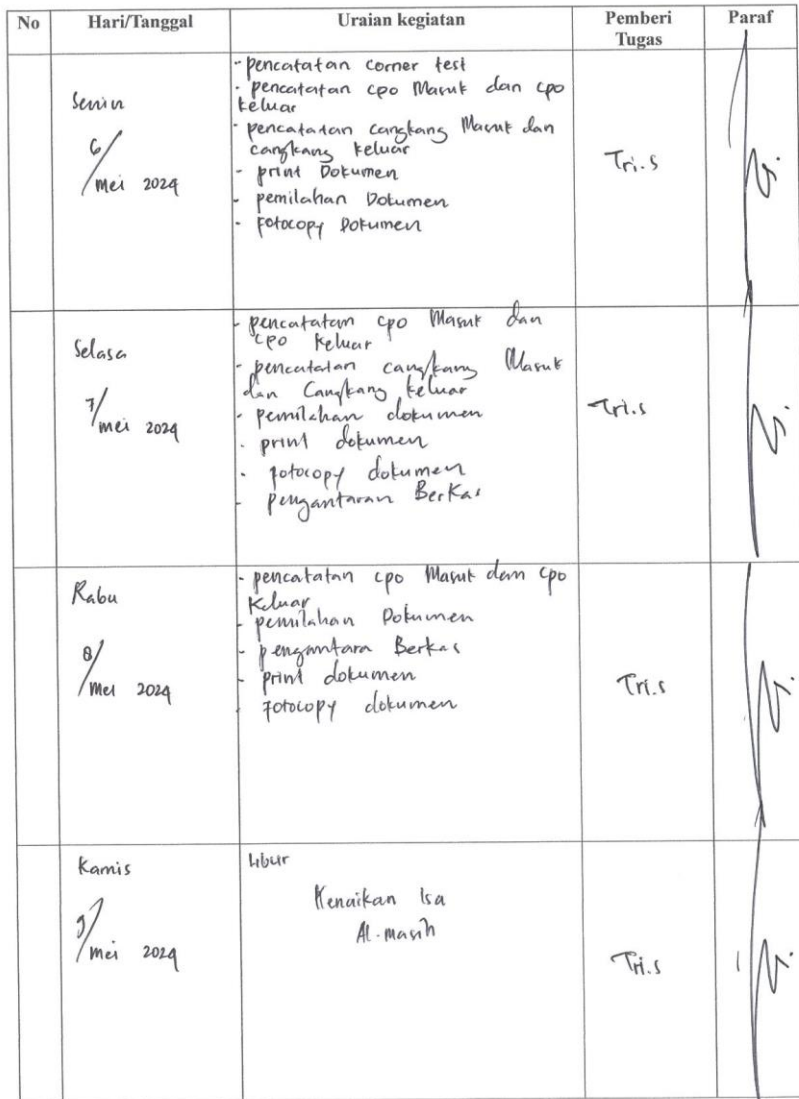 No Hari/Tanggal Uraian kegiatan Pemberi Tugas Paraf
Senin
6/mei 2024
- pencatatan corner test
- pencatatan cpo Masuk dan cpo
keluar
- pencatatan cangkang Masuk dan
cangkang keluar
- print Dokumen
- pemilahan Dokumen
- Fotocopy Dokumen
Tri.s
Selasa
7/mei 2024
- pencatatan cpo Masuk dan
cpo keluar
- pencatatan cangkang Masuk
dan Cangkang keluar
- pemilahan dokumen
- print dokumen
- fotocopy dokumen
- pengantaran Berkas
Tri.s
Rabu
8/mei 2024
- pencatatan cpo Masuk dan cpo
Keluar
- pemilahan Dokumen
- pengantara Berkas
- print dokumen
- fotocopy dokumen
Tri.s
Kamis
9/mei 2024
Libur
Kenaikan Isa
Al-masih
Tri.s